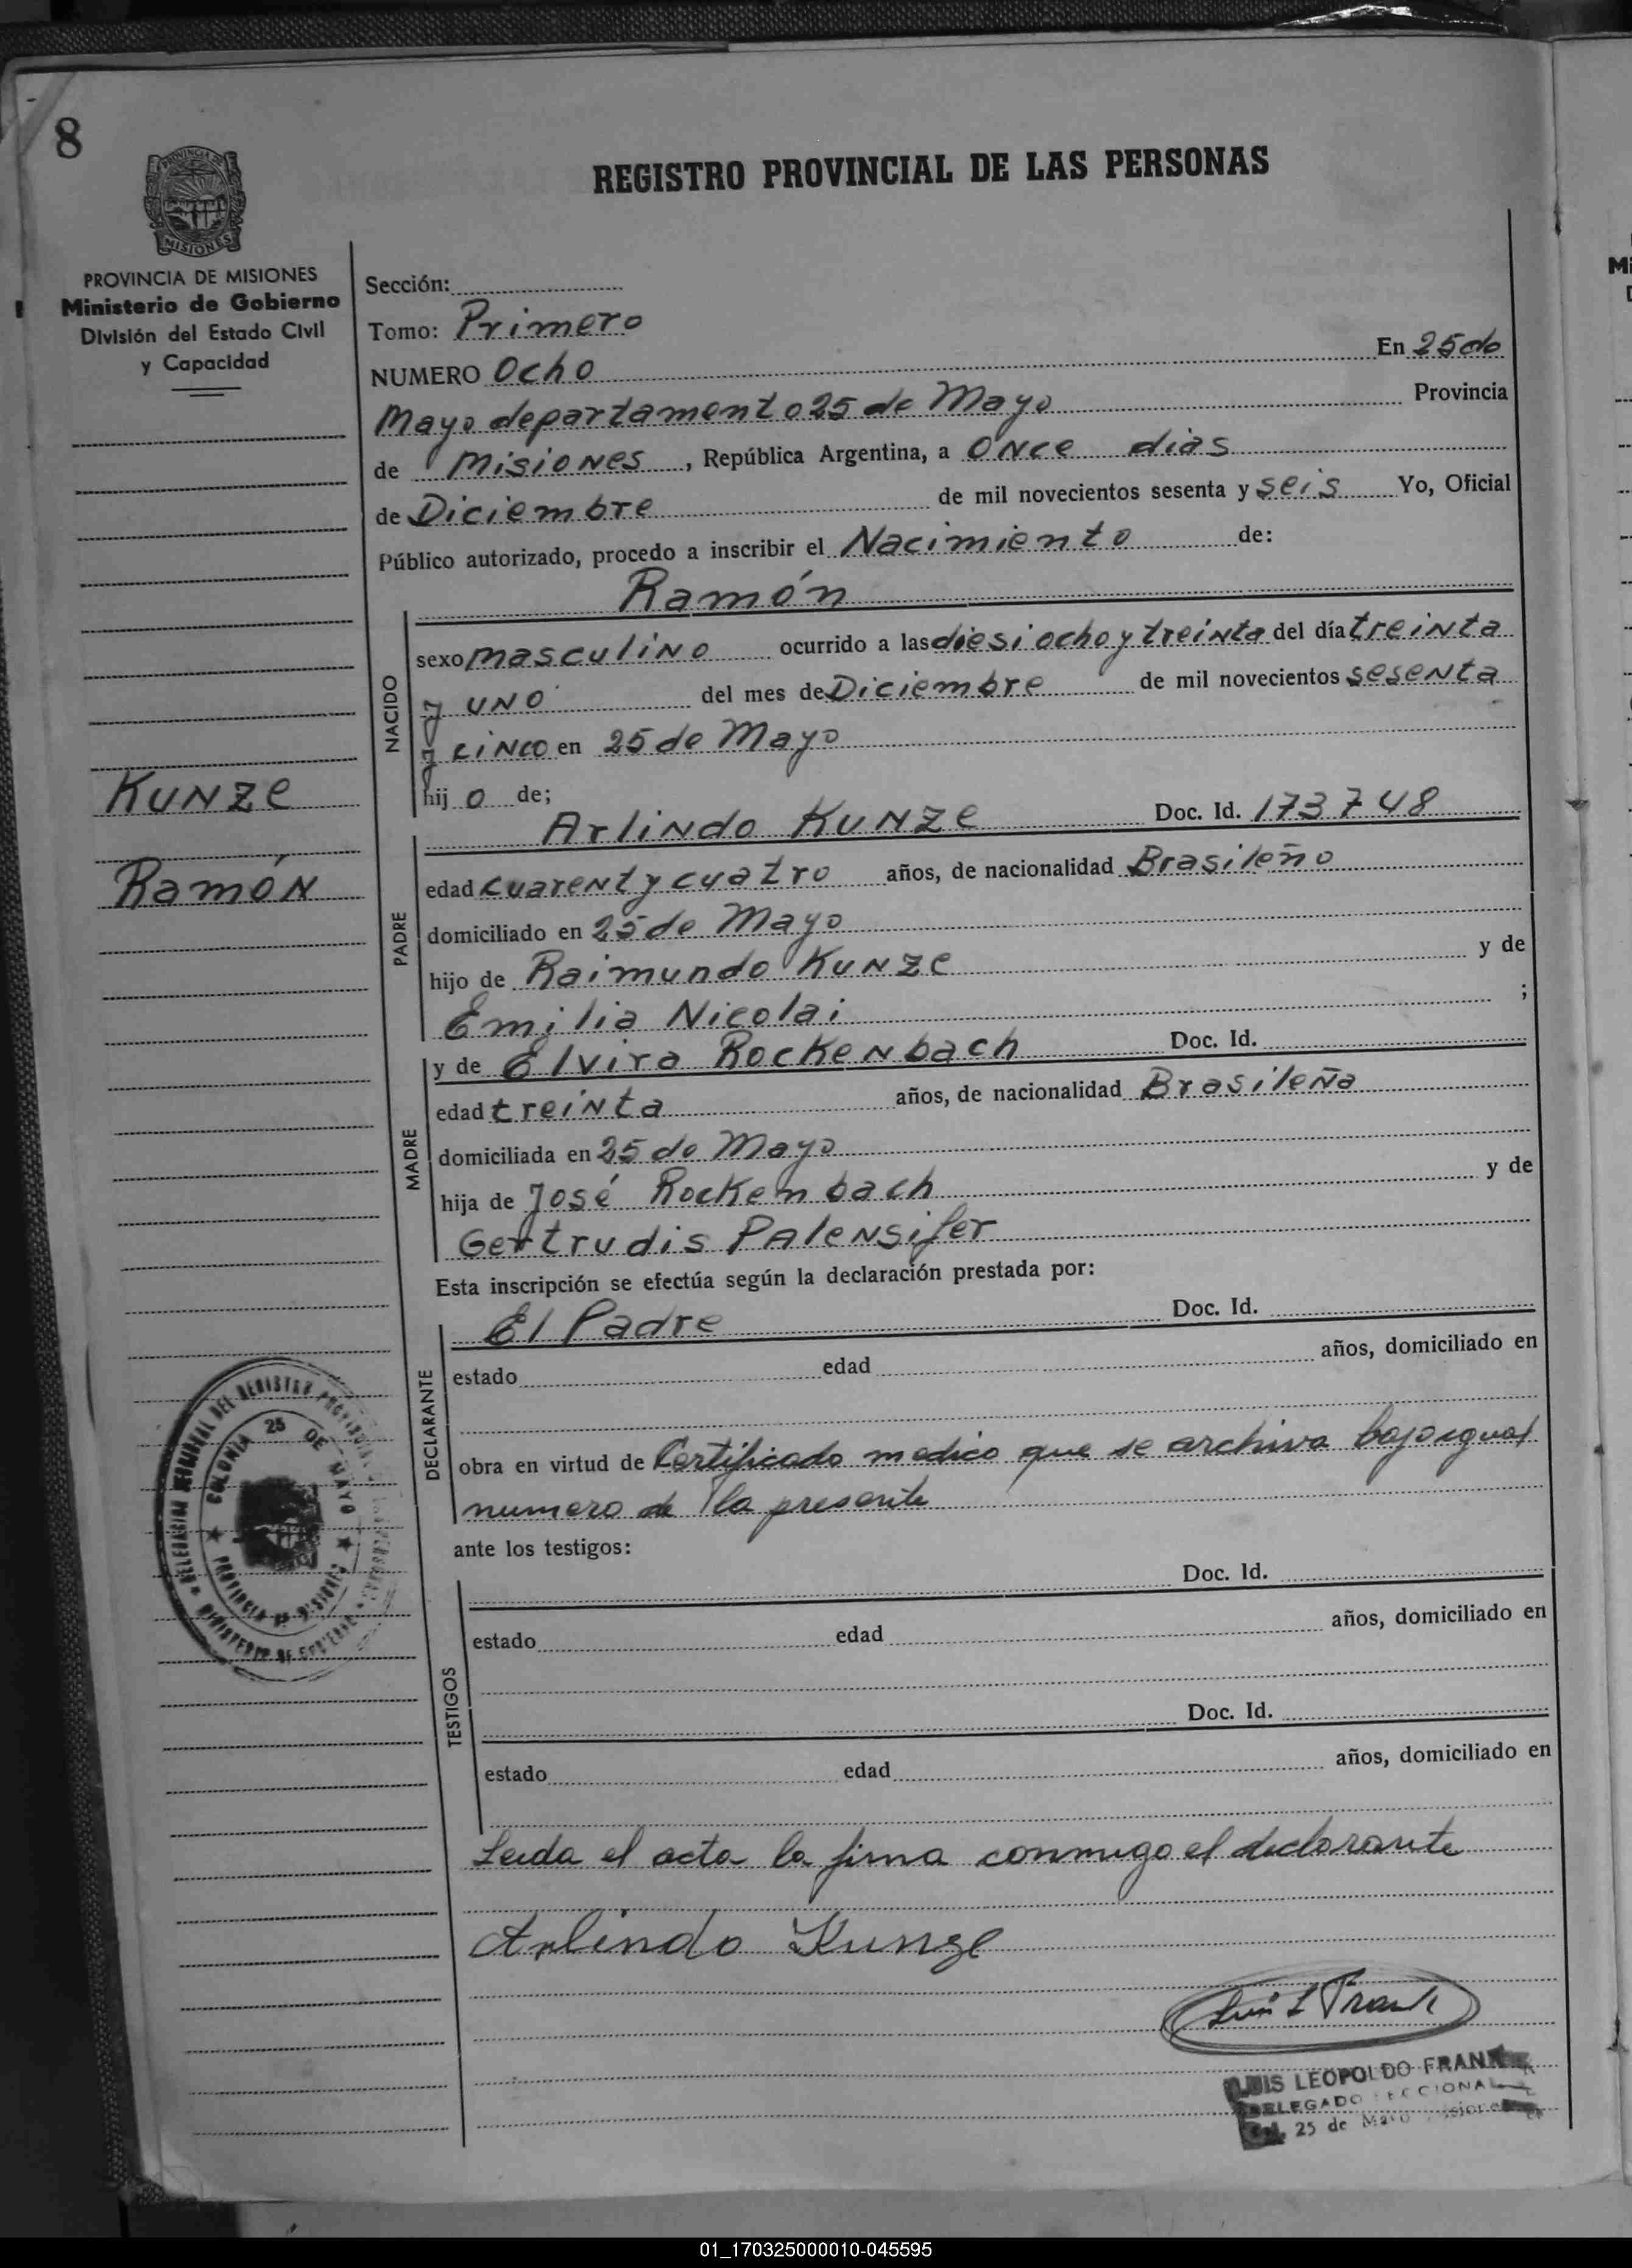 8
REGISTRO PROVINCIAL DE LAS PERSONAS
PROVINCIA DE MISIONES
Ministerio de Gobierno
División del Estado Civil
y Capacidad
Sección:
Tomo: Primero
NUMERO Ocho En 25 de
Mayo departamento 25 de Mayo Provincia
de Misiones, República Argentina, a once dias
de Diciembre de mil novecientos sesenta y seis Yo, Oficial
Público autorizado, procedo a inscribir el Nacimiento de:
Ramón
NACIDO
sexo masculino ocurrido a las diesiocho y treinta del día treinta
y uno del mes de Diciembre de mil novecientos sesenta
y cinco en 25 de Mayo
hijo de;
Kunze
Ramón
PADRE
Arlindo Kunze Doc. Id. 173748
edad cuarent y cuatro años, de nacionalidad Brasileño
domiciliado en 25 de Mayo
hijo de Raimundo Kunze y de
Emilia Nicolai ;
MADRE
y de Elvira Rockenbach Doc. Id.
edad treinta años, de nacionalidad Brasileña
domiciliada en 25 de Mayo
hija de José Rockembach y de
Gertrudis Palensifer
Esta inscripción se efectúa según la declaración prestada por:
DECLARANTE
El Padre Doc. Id.
estado edad años, domiciliado en
obra en virtud de Certificado medico que se archiva bajo igual
numero de la presente
ante los testigos:
TESTIGOS
Doc. Id.
estado edad años, domiciliado en
Doc. Id.
estado edad años, domiciliado en
Leida el acta la firma conmigo el declarante
Arlindo Kunze
Luis L Frank
LUIS LEOPOLDO FRANK
DELEGADO SECCIONAL
25 de Mayo
COLONIA 25 DE MAYO
PROVINCIA DE MISIONES
01_170325000010-045595